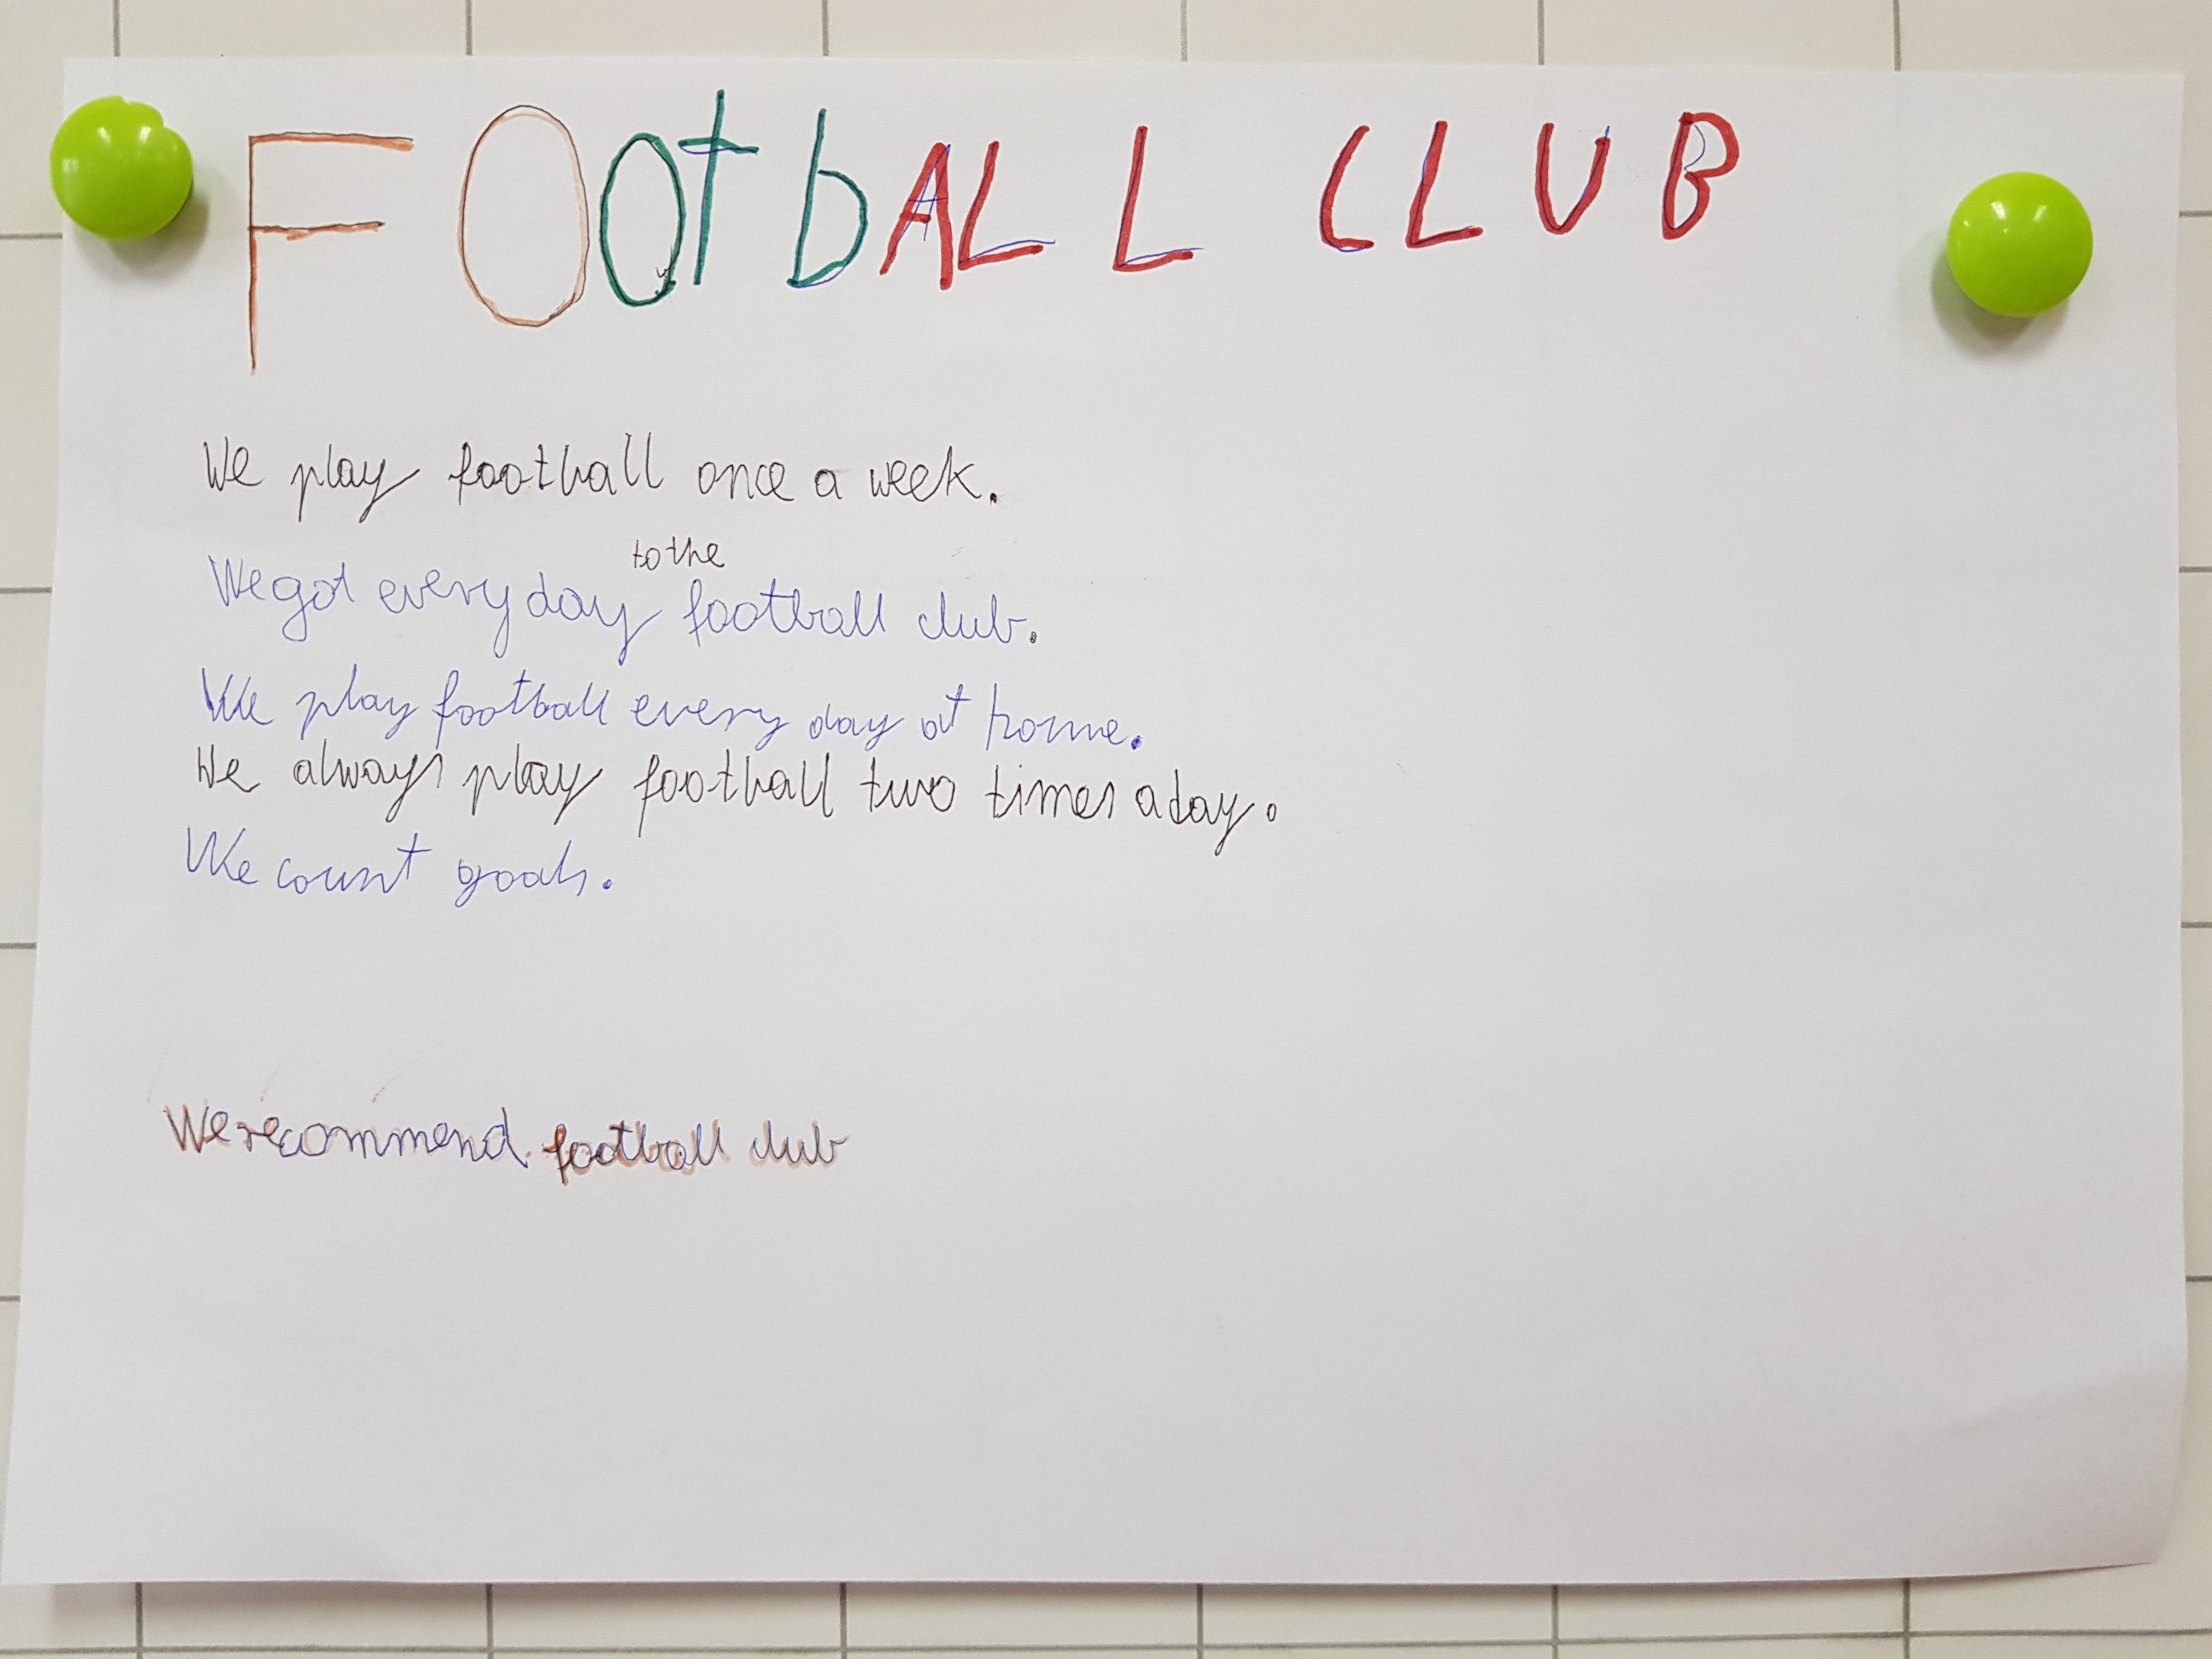 FOOtbALL CLUB
We play football once a week.
to the
We got every day football club.
We play football every day at home.
We always play football two times a day.
We count goals.
We recommend football club